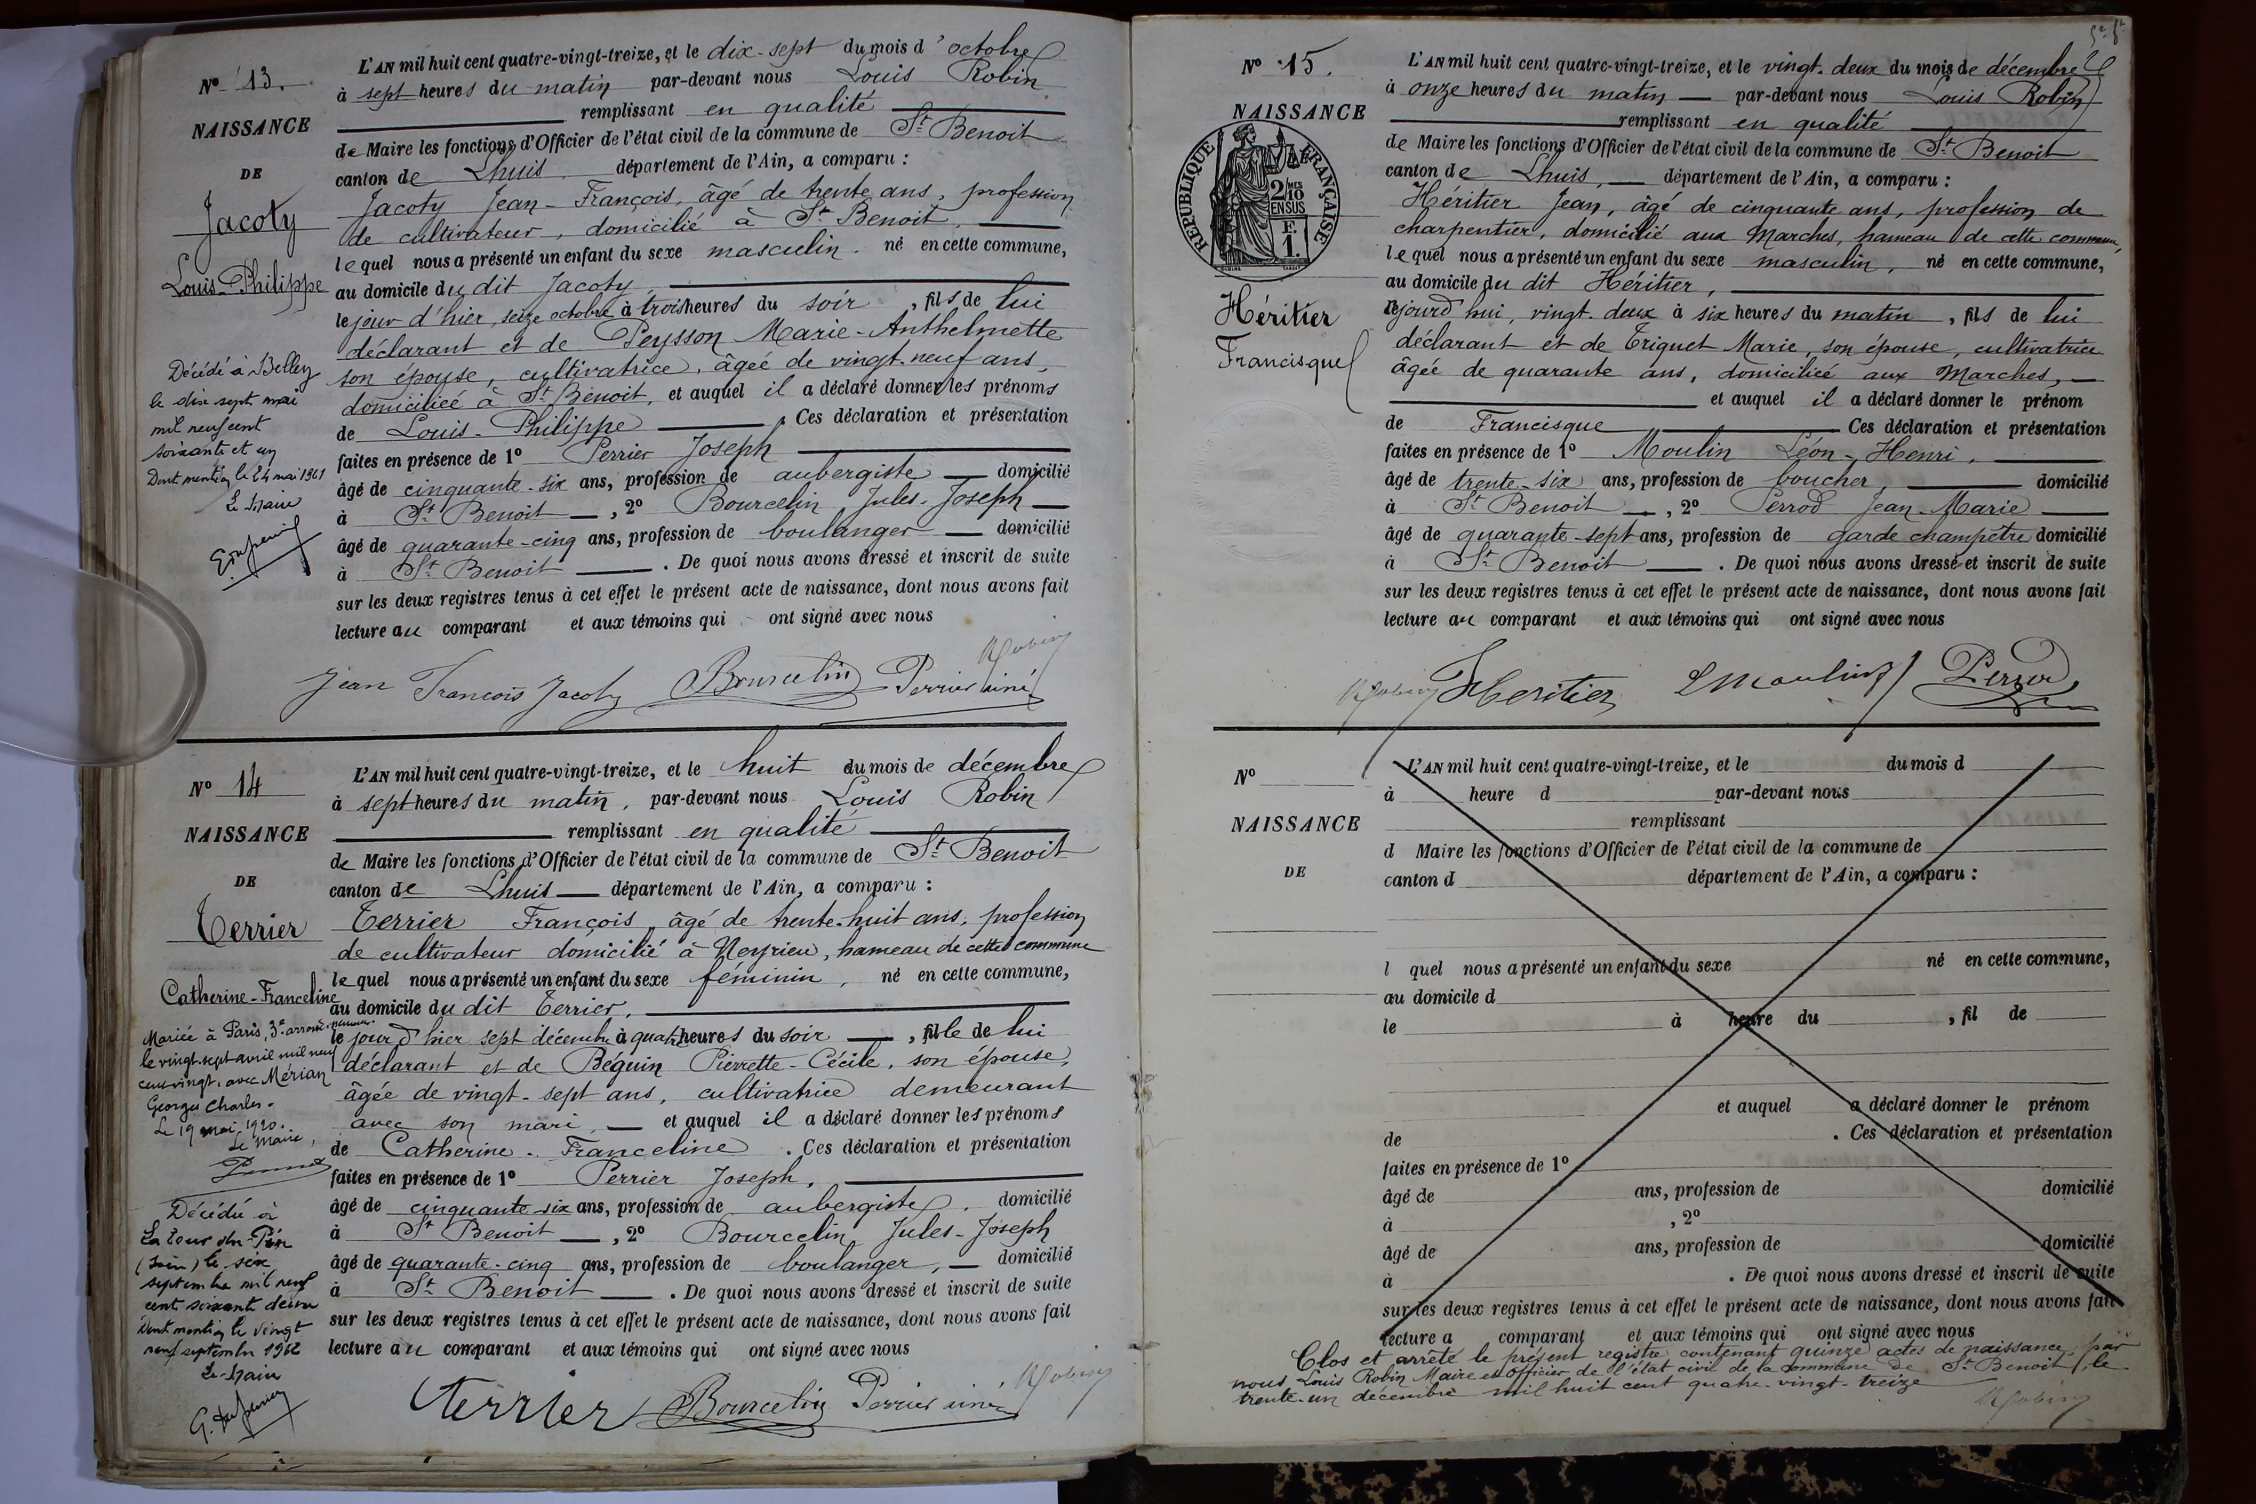 N° 13.
NAISSANCE
DE
Jacoty
Louis-Philippe
Décédé à Belley
le dix sept mai
mil neuf cent
soixante et un
Dont mention le 24 mai 1961
Le Maire
L'AN mil huit cent quatre-vingt-treize, et le dix-sept du mois d'octobre
à sept heures du matin par-devant nous Louis Robin
remplissant en qualité
de Maire les fonctions d'Officier de l'état civil de la commune de St Benoit
canton de Lhuis département de l'Ain, a comparu :
Jacoty Jean-François, âgé de trente ans, profession
de cultivateur, domicilié à St Benoit,
lequel nous a présenté un enfant du sexe masculin. né en cette commune,
au domicile du dit Jacoty,
le jour d'hier, seize octobre à trois heures du soir, fils de lui
déclarant et de Peysson Marie-Anthelmette
son épouse, cultivatrice, âgée de vingt-neuf ans,
domiciliée à St Benoit, et auquel il a déclaré donner les prénoms
de Louis-Philippe. Ces déclaration et présentation
faites en présence de 1° Perrier Joseph
âgé de cinquante-six ans, profession de aubergiste domicilié
à St Benoit, 2° Bourcelin Jules-Joseph
âgé de quarante-cinq ans, profession de boulanger domicilié
à St Benoit. De quoi nous avons dressé et inscrit de suite
sur les deux registres tenus à cet effet le présent acte de naissance, dont nous avons fait
lecture au comparant et aux témoins qui ont signé avec nous
Robin
Jean François Jacoty Bourcelin Perrier ainé
N° 14
NAISSANCE
DE
Terrier
Catherine-Franceline
Mariée à Paris, 3e arrond.
le vingt-sept avril mil neuf
cent vingt, avec Mérian
Georges Charles.
Le 19 mai 1920.
Le Maire,
Décédée à
La Tour du Pin
le six
septembre mil neuf
cent soixante deux
Dont mention le vingt
neuf septembre 1962
Le Maire
L'AN mil huit cent quatre-vingt-treize, et le huit du mois de décembre
à sept heures du matin, par-devant nous Louis Robin
remplissant en qualité
de Maire les fonctions d'Officier de l'état civil de la commune de St Benoit
canton de Lhuis département de l'Ain, a comparu :
Terrier François, âgé de trente-huit ans, profession
de cultivateur domicilié à Neyrieu, hameau de cette commune
lequel nous a présenté un enfant du sexe féminin, né en cette commune,
au domicile du dit Terrier,
le jour d'hier sept décembre à quatre heures du soir, fille de lui
déclarant et de Béguin Pierrette-Cécile, son épouse,
âgée de vingt-sept ans, cultivatrice demeurant
avec son mari, et auquel il a déclaré donner les prénoms
de Catherine-Franceline. Ces déclaration et présentation
faites en présence de 1° Perrier Joseph,
âgé de cinquante-six ans, profession de aubergiste, domicilié
à St Benoit, 2° Bourcelin Jules-Joseph
âgé de quarante-cinq ans, profession de boulanger, domicilié
à St Benoit. De quoi nous avons dressé et inscrit de suite
sur les deux registres tenus à cet effet le présent acte de naissance, dont nous avons fait
lecture au comparant et aux témoins qui ont signé avec nous
Terrier Bourcelin Perrier ainé Robin
N° 15.
NAISSANCE
RÉPUBLIQUE FRANÇAISE
2/10 MES
EN SUS
F.
1.
Héritier
Francisque
L'AN mil huit cent quatre-vingt-treize, et le vingt-deux du mois de décembre
à onze heures du matin par-devant nous Louis Robin
remplissant en qualité
de Maire les fonctions d'Officier de l'état civil de la commune de St Benoit
canton de Lhuis, département de l'Ain, a comparu :
Héritier Jean, âgé de cinquante ans, profession de
charpentier, domicilié aux Marches, hameau de cette commune,
lequel nous a présenté un enfant du sexe masculin, né en cette commune,
au domicile du dit Héritier,
cejourd'hui, vingt-deux à six heures du matin, fils de lui
déclarant et de Triquet Marie, son épouse, cultivatrice
âgée de quarante ans, domiciliée aux Marches,
et auquel il a déclaré donner le prénom
de Francisque Ces déclaration et présentation
faites en présence de 1° Moulin Léon-Henri,
âgé de trente-six ans, profession de boucher, domicilié
à St Benoit, 2° Perrod Jean-Marie
âgé de quarante-sept ans, profession de garde champêtre domicilié
à St Benoit. De quoi nous avons dressé et inscrit de suite
sur les deux registres tenus à cet effet le présent acte de naissance, dont nous avons fait
lecture au comparant et aux témoins qui ont signé avec nous
Robin Heritier L Moulin Perrod
N°
NAISSANCE
DE
L'AN mil huit cent quatre-vingt-treize, et le du mois d
à heure d par-devant nous
remplissant
d Maire les fonctions d'Officier de l'état civil de la commune de
canton d département de l'Ain, a comparu :
l quel nous a présenté un enfant du sexe né en cette commune,
au domicile d
le à heure du , fil de
et auquel a déclaré donner le prénom
de . Ces déclaration et présentation
faites en présence de 1°
âgé de ans, profession de domicilié
à , 2°
âgé de ans, profession de domicilié
à . De quoi nous avons dressé et inscrit de suite
sur les deux registres tenus à cet effet le présent acte de naissance, dont nous avons fait
lecture a comparant et aux témoins qui ont signé avec nous
Clos et arrêté le présent registre contenant quinze actes de naissance, par
nous Louis Robin Maire et officier de l'état civil de la commune de St Benoit, le
trente-un décembre mil huit cent quatre-vingt-treize
Robin